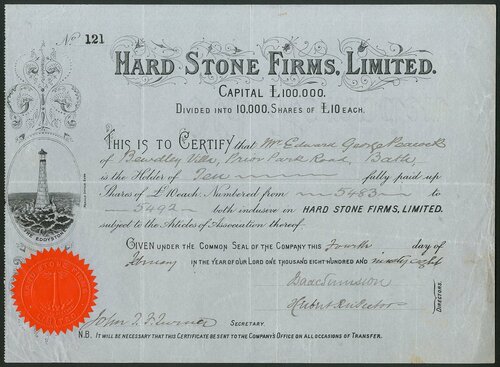 No 121
HARD STONE FIRMS, LIMITED.
CAPITAL £100,000.
DIVIDED INTO 10,000, SHARES OF £10 EACH.
THIS IS TO CERTIFY that Mr Edward George Peacock
of Bewdley Villa, Prior Park Road, Bath,
is the Holder of Ten fully paid up
Shares of £10 each. Numbered from 5483 to
5492 both inclusive in HARD STONE FIRMS, LIMITED.
subject to the Articles of Association thereof.
GIVEN UNDER THE COMMON SEAL OF THE COMPANY THIS Fourth day of
IN THE YEAR OF OUR LORD ONE THOUSAND EIGHT HUNDRED AND ninety eight
THE EDDYSTONE
DIRECTORS.
John Turner SECRETARY.
N.B. IT WILL BE NECESSARY THAT THIS CERTIFICATE BE SENT TO THE COMPANY'S OFFICE ON ALL OCCASIONS OF TRANSFER.